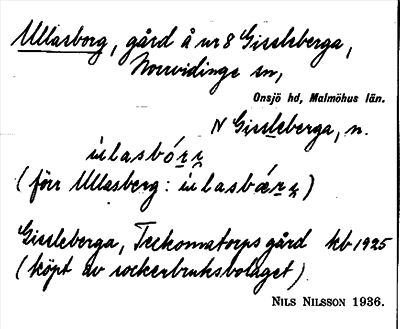 Ullasborg, gård å nr 8 Gissleberga,
Norrvidinge sn,
Onsjö hd, Malmöhus län.
N Gissleberga, n.
ùlasbór̲r̥
(förr Ullasberg: ùlasbær̲r̥)
Gissleberga, Teckomatorps gård kb 1925
(köpt av sockerbruksbolaget)
NILS NILSSON 1936.